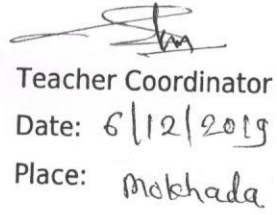 Teacher Coordinator
Date: 6/12/2019
Place: Mokhada